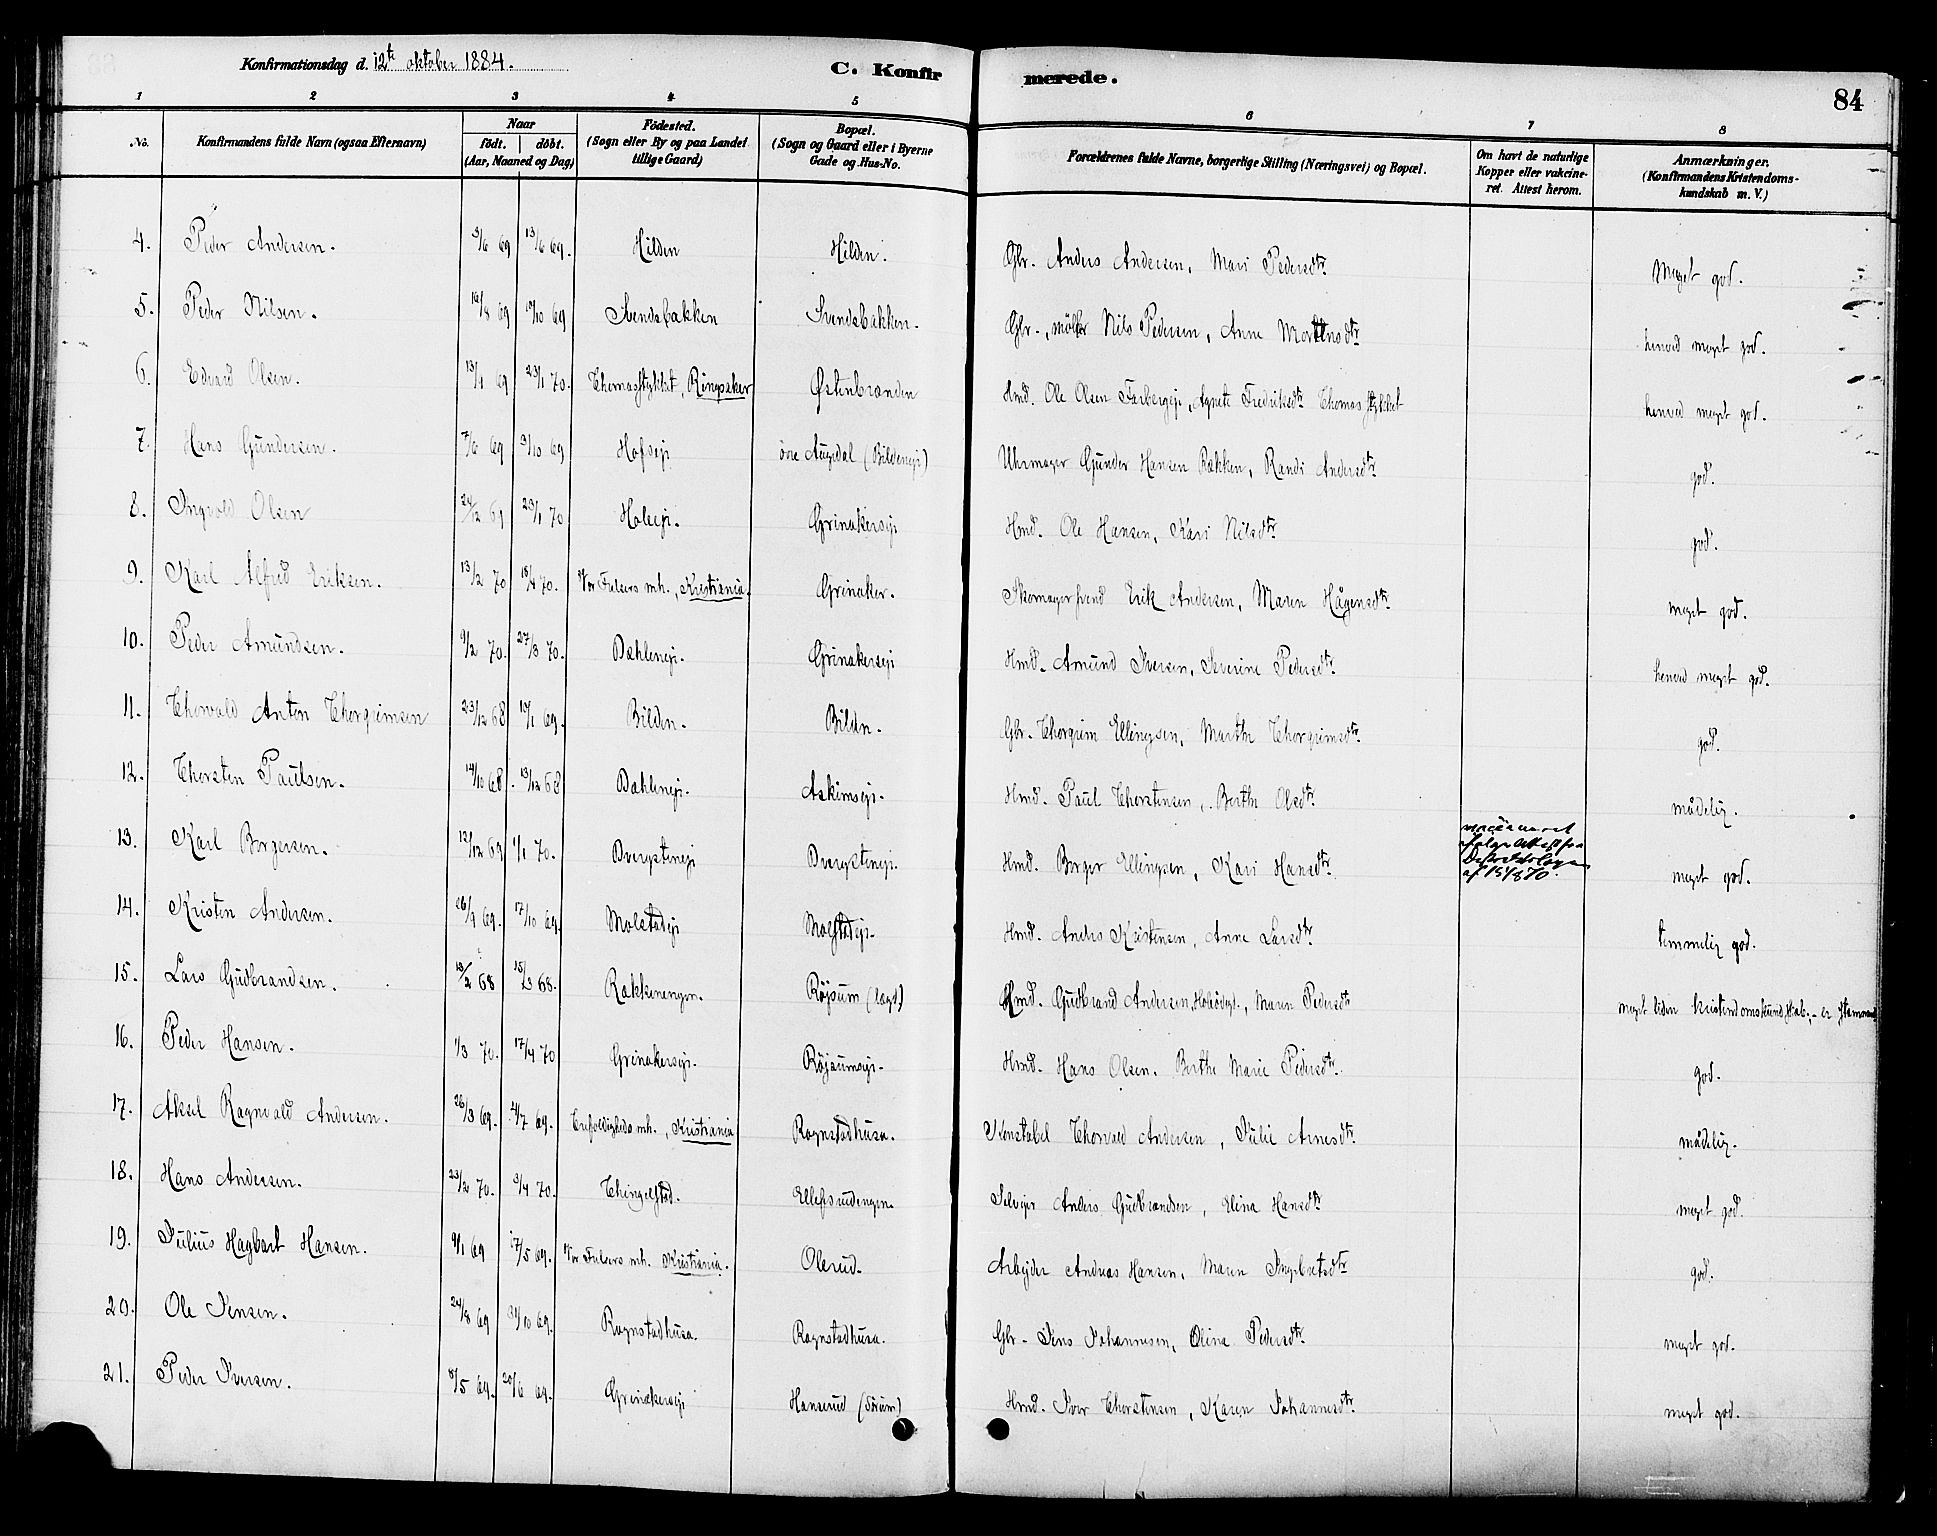 Konfirmationsdag d. 12te oktober 1884.
C. Konfirmerede.
84
1 2 3 4 5 6 7 8
No.
Konfirmandens fulde Navn (ogsaa Efternavn)
Naar
födt. döbt.
(Aar, Maaned og Dag)
Födested.
(Sogn eller By og paa Landet
tillige Gaard)
Bopæl.
(Sogn og Gaard eller i Byerne
Gade og Hus-No.
Forældrenes fulde Navne, borgerlige Stilling (Næringsvei) og Bopæl.
Om havt de naturlige
Kopper eller vakcine-
ret. Attest herom.
Anmærkninger.
(Konfirmandens Kristendoms-
kundskab m. V.)
4. Peder Andersen. 3/6 69 13/6 69. Hilden Hilden. Gbr. Anders Andersen, Mari Pedersdtr. Meget god.
5. Peder Nilsen. 69 10/10 69 Svendsbakken Svendsbakken. Gbr., möller Nils Pedersen, Anne Mortensdtr henved meget god.
6. Edvard Olsen. 69 23/1 70. Thomasstykket, Ringsaker Østenbranden Hmd. Ole Olsen, Agnete Fredriksdtr Thomasstykket henved meget god.
7. Hans Gundersen. 7/6 69 3/10 69 Hofsejr övre Augedal (Bildenejr) Uhrmager Gunder Hansen Bakken, Randi Andersdtr god.
8. Ingvald Olsen 24/12 69 23/1 70 Holeejr. Grinakersejr Hmd. Ole Hansen, Kari Nilsdtr god.
9. Karl Alfred Eriksen. 13/2 70 18/4 70. Vor Frelsers mh., Kristiania. Grinaker. Skomagersvend Erik Andersen, Maren Hågensdtr meget god.
10. Peder Amundsen. 9/2 70. 27/3 70. Dæhlenejr. Grinakersejr Hmd. Amund Iversen, Severine Pedersdtr henved meget god.
11. Thorvald Anton Thorgrimsen 23/12 68 17/1 69. Bilden. Bilden. Gbr. Thorgrim Ellingsen, Marthe Thorgrimsdtr. god.
12. Thorsten Paulsen. 14/10 68. 13/12 68 Dæhlenejr. Askimsejr. Hmd. Paul Thorstensen, Berthe Olsdtr. mådelig.
13. Karl Borgersen. 12/12 69 1/1 70. Dvergstenejr Dvergstenejr. Hmd. Borger Ellingsen, Kari Hansdtr. vaccineret
ifølge Attest fra
af 15/8 70. meget god.
14. Kristen Andersen. 26/9 69. 17/10 69. Molstadejr Molstadejr. Hmd. Anders Kristensen, Anne Larsdtr. temmelig god.
15. Lars Gudbrandsen. 68 15/3 68. Røjsum (lægd) Hmd. Gudbrand Andersen, Maren Pedersdtr meget liden kristendomskundskab; – er
16. Peder Hansen. 1/3 70. 17/4 70 Grinakersejr. Röjsumsejr. Hmd. Hans Olsen. Berthe Marie Pedersdtr. god.
17. Aksel Ragnvald Andersen. 26/3 69. 4/7 69. Trefoldigheds mh., Kristiania Rognstadhusa. Konstabel Thorvald Andersen, Julie Arnesdtr. mådelig.
18. Hans Andersen. 23/2 70. 3/4 70. Thingelstad. Ellefsrudengen. Selvejer Anders Gudbrandsen, Elina Hansdtr meget god.
19. Julius Hagbart Hansen. 9/1 69 17/5 69. Vor Frelsers mh. Kristiania. Olerud. Arbejder Andreas Hansen, Maren Ingebretsdtr god.
20. Ole Jensen. 24/8 69 31/10 69. Rognstadhusa. Rognstadhusa. Gbr. Jens Johannesen, Olina Pedersdtr meget god.
21. Peder Iversen. 8/5 69. 20/6 69. Grinakersejr Hanserud (Sörum) Hmd. Iver Thorstensen, Karen Johannesdtr. meget god.